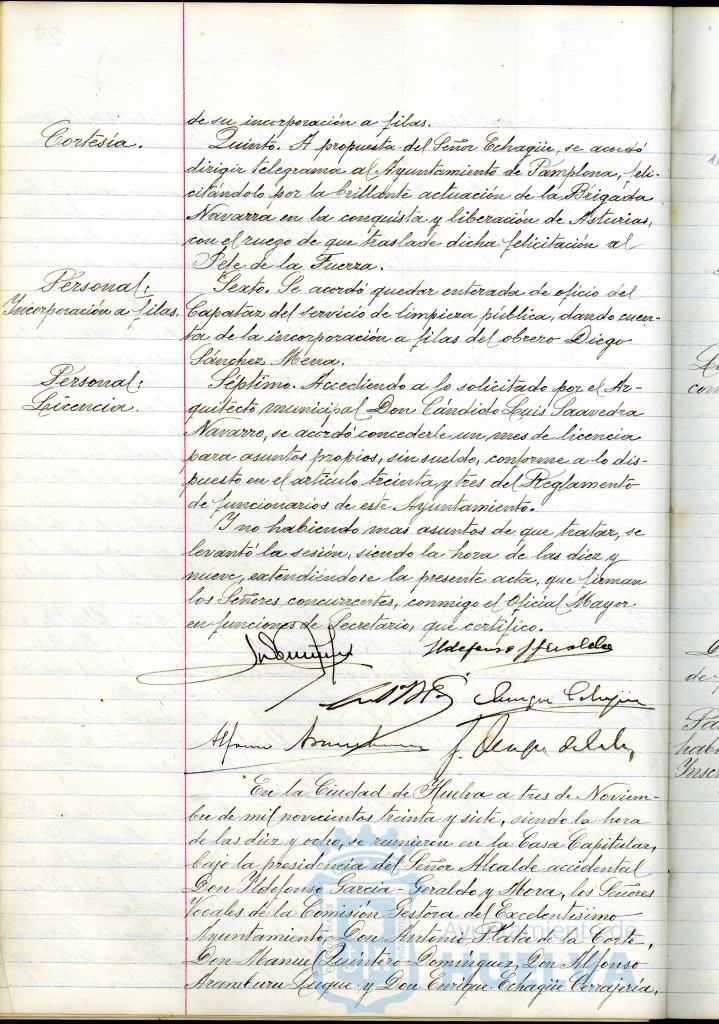 de su incorporación a filas.
Cortesía.
Quinto. A propuesta del Señor Echagüe, se acordó
dirigir telegrama al Ayuntamiento de Pamplona, feli-
citándolo por la brillante actuación de la Brigada
Navarra en la conquista y liberación de Asturias,
con el ruego de que traslade dicha felicitación al
Jefe de la Fuerza.
Personal:
Incorporación a filas.
Sexto. Se acordó quedar enterada de oficio del
Capataz del servicio de limpieza pública, dando cuen-
ta de la incorporación a filas del obrero Diego
Sánchez Mena.
Personal:
Licencia.
Séptimo. Accediendo a lo solicitado por el Ar-
quitecto municipal Don Cándido Luis Saavedra
Navarro, se acordó concederle un mes de licencia
para asuntos propios, sin sueldo, conforme a lo dis-
puesto en el artículo treinta y tres del Reglamento
de funcionarios de este Ayuntamiento.
Y no habiendo mas asuntos de que tratar, se
levantó la sesión, siendo la hora de las diez y
nueve, extendiéndose la presente acta, que firman
los Señores concurrentes, conmigo el Oficial Mayor
en funciones de Secretario, que certifico.
Ildefonso
Enrique Echagüe
Alfonso Aramburu
En la Ciudad de Huelva a tres de Noviem-
bre de mil novecientos treinta y siete, siendo la hora
de las diez y ocho, se reunieron en la Casa Capitular,
bajo la presidencia del Señor Alcalde accidental
Don Ildefonso Garcia-Geraldo y Mora, los Señores
Vocales de la Comisión Gestora del Excelentísimo
Ayuntamiento, Don Antonio Plata de la Corte,
Don Manuel Quintero Domínguez, Don Alfonso
Aramburu Luque y Don Enrique Echagüe Cerrajería,
Ayuntamiento de
HUELVA